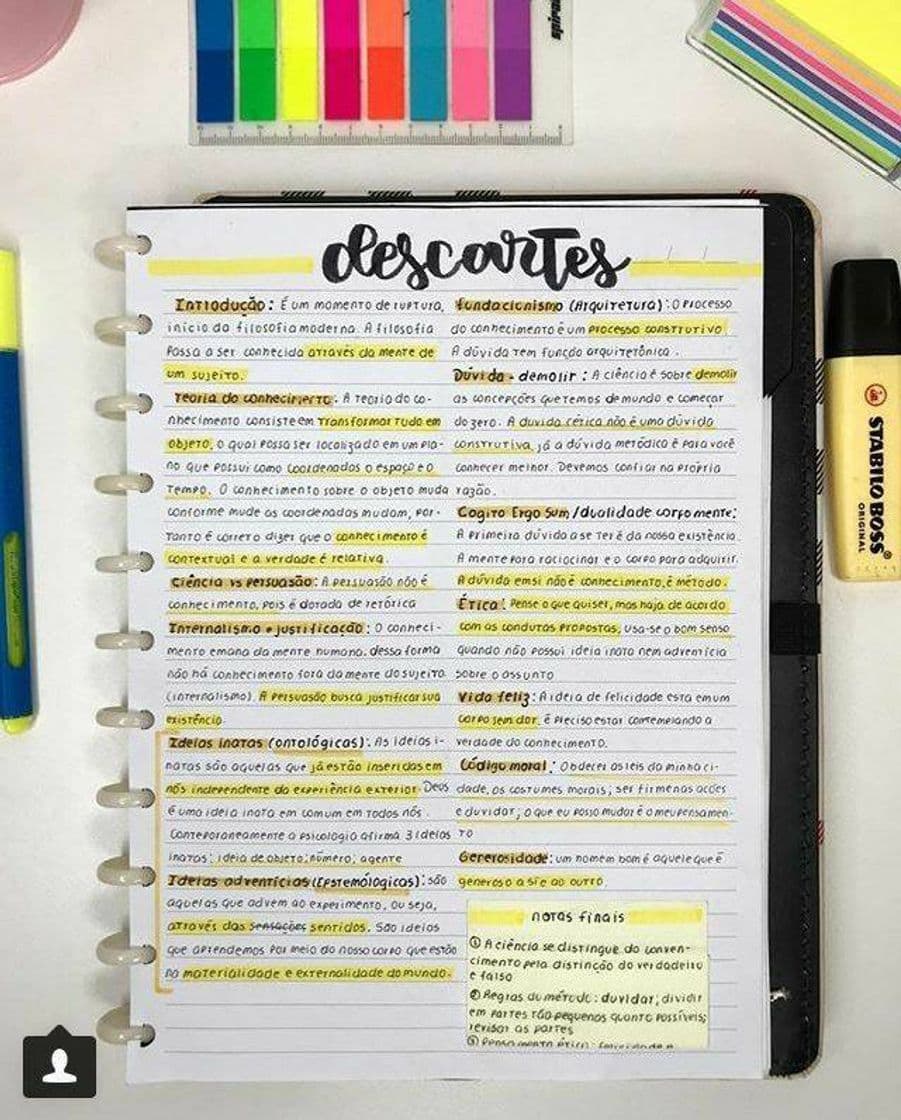 descartes
Introdução: É um momento de ruptura,
início da filosofia moderna. A filosofia
passa a ser conhecida através da mente de
um sujeito.
Teoria do conhecimento: A teoria do co-
nhecimento consiste em transformar tudo em
objeto, o qual possa ser localizado em um pla-
no que possui como coordenadas o espaço e o
tempo. O conhecimento sobre o objeto muda
conforme mude as coordenadas mudam, por-
tanto é correto dizer que o conhecimento é
contextual e a verdade é relativa.
Ciência vs Persuasão: A persuasão não é
conhecimento, pois é dotada de retórica
Internalismo e justificação: O conheci-
mento emana da mente humana. dessa forma
não há conhecimento fora da mente do sujeito
(internalismo). A persuasão busca justificar sua
existência.
Ideias inatas (ontológicas): As ideias i-
natas são aquelas que já estão inseridas em
nós independente da experiência exterior. Deus
é uma ideia inata em comum em todos nós.
Contemporaneamente a psicologia afirma 3 ideias
inatas: ideia de objeto; número; agente
Ideias adventícias (Epstemólogicas): são
aquelas que advem ao experimento, ou seja,
através das sensações sentidos. São ideias
que aprendemos por meio do nosso corpo que estão
na materialidade e externalidade do mundo.
fundacionismo (Arquitetura): O processo
do conhecimento é um processo construtivo
A dúvida tem função arquitetônica.
Dúvida - demolir: A ciência é sobre demolir
as concepções que temos de mundo e começar
do zero. A duvida cética não é uma dúvida
construtiva, já a dúvida metódica é para você
conhecer melhor. Devemos confiar na própria
razão.
Cogito Ergo Sum/dualidade corpo mente:
A primeira dúvida a se ter é da nossa existência.
A mente para raciocinar e o corpo para adquirir.
A dúvida em si não é conhecimento, é método.
Ética: Pense o que quiser, mas haja de acordo
com as condutas propostas, usa-se o bom senso
quando não possui ideia inata nem adventícia
sobre o assunto
Vida feliz: A ideia de felicidade esta em um
corpo sem dor. é preciso estar contemplando a
verdade do conhecimento.
Código moral: Obdecer as leis da minha ci-
dade, os costumes morais; ser firme nas ações
e duvidar; o que eu posso mudar é o meu pensamen-
to
Generosidade: um homem bom é aquele que é
generoso a si e ao outro.
notas finais
① A ciência se distingue do conven-
cimento pela distinção do verdadeiro
e falso
② Regras do método: duvidar; dividir
em partes tão pequenas quanto possíveis;
revisar as partes
③ Pensamento ético:
STABILO BOSS
ORIGINAL